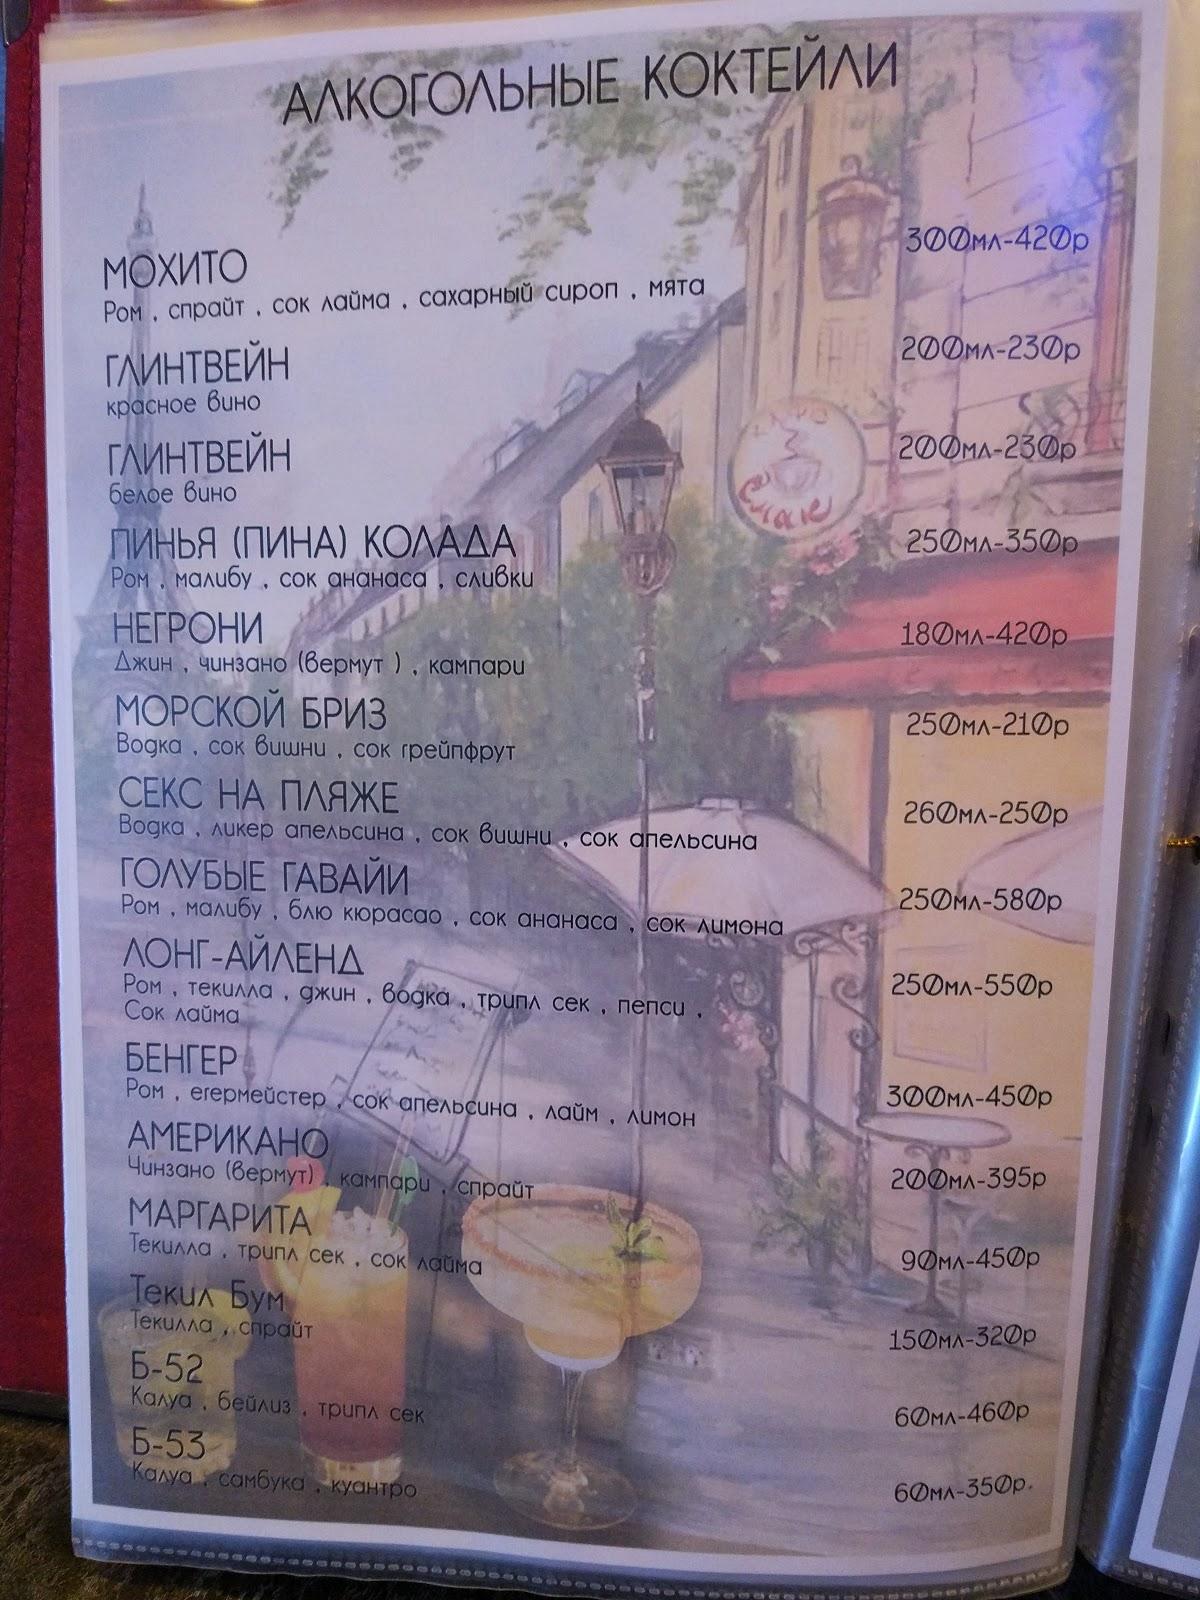 АЛКОГОЛЬНЫЕ КОКТЕЙЛИ
МОХИТО 300мл-420р
Ром , спрайт , сок лайма , сахарный сироп , мята
ГЛИНТВЕЙН 200мл-230р
красное вино
ГЛИНТВЕЙН 200мл-230р
белое вино
ПИНЬЯ (ПИНА) КОЛАДА 250мл-350р
Ром , малибу , сок ананаса , сливки
НЕГРОНИ 180мл-420р
Джин , чинзано (вермут ) , кампари
МОРСКОЙ БРИЗ 250мл-210р
Водка , сок вишни , сок грейпфрут
СЕКС НА ПЛЯЖЕ 260мл-250р
Водка , ликер апельсина , сок вишни , сок апельсина
ГОЛУБЫЕ ГАВАЙИ 250мл-580р
Ром , малибу , блю кюрасао , сок ананаса , сок лимона
ЛОНГ-АЙЛЕНД 250мл-550р
Ром , текилла , джин , водка , трипл сек , пепси ,
Сок лайма
БЕНГЕР 300мл-450р
Ром , егермейстер , сок апельсина , лайм , лимон
АМЕРИКАНО 200мл-395р
Чинзано (вермут) , кампари , спрайт
МАРГАРИТА 90мл-450р
Текилла , трипл сек , сок лайма
Текил Бум 150мл-320р
Текилла , спрайт
Б-52 60мл-460р
Калуа , бейлиз , трипл сек
Б-53 60мл-350р.
Калуа , самбука , куантро